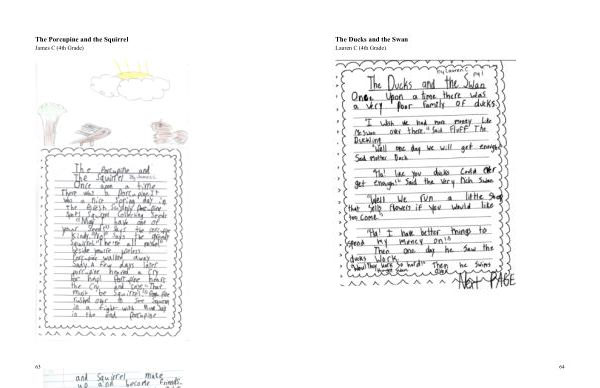 The Porcupine and the Squirrel
James C (4th Grade)
The Porcupine and
The Squirrel By James C
Once upon a time
There was a Porcupine. It
was a nice spring day in
the forest. Porcupine
Spots Squirrel Collecting Seeds
"May I have one of
your Seeds?" Says the Porcupine
Kindly. "No!" Says the
Squirrel. "These all mine!
beside you're useless.
Porcupine walked away
Sadly. A few days later
Porcupine heared a Cry
for help! Porcupine hears
the Cry and says "That
must be Squirrel!"
rushed over to See Squirrel
in a fight with
in the end Porcupine
and Squirrel make
up and become friends.
63
The Ducks and the Swan
Lauren C (4th Grade)
by Lauren C pg 1
The Ducks and the Swan
Once Upon a time there was
a very Poor family of ducks
"I wish we had more money like
Mr Swan over there." Said Fluff The
Duckling
"Well one day we will get enough"
Said Mother Duck
"Ha! Like you ducks could ever
get enough!" Said the very Rich Swan
"Well we run a little shop
that sells flowers if you would like
too come."
"Ha! I have better things to
spend my money on!"
Then one day he saw the
ducks work.
"Woa! They work so hard!" Then he swims
Next PAGE
64